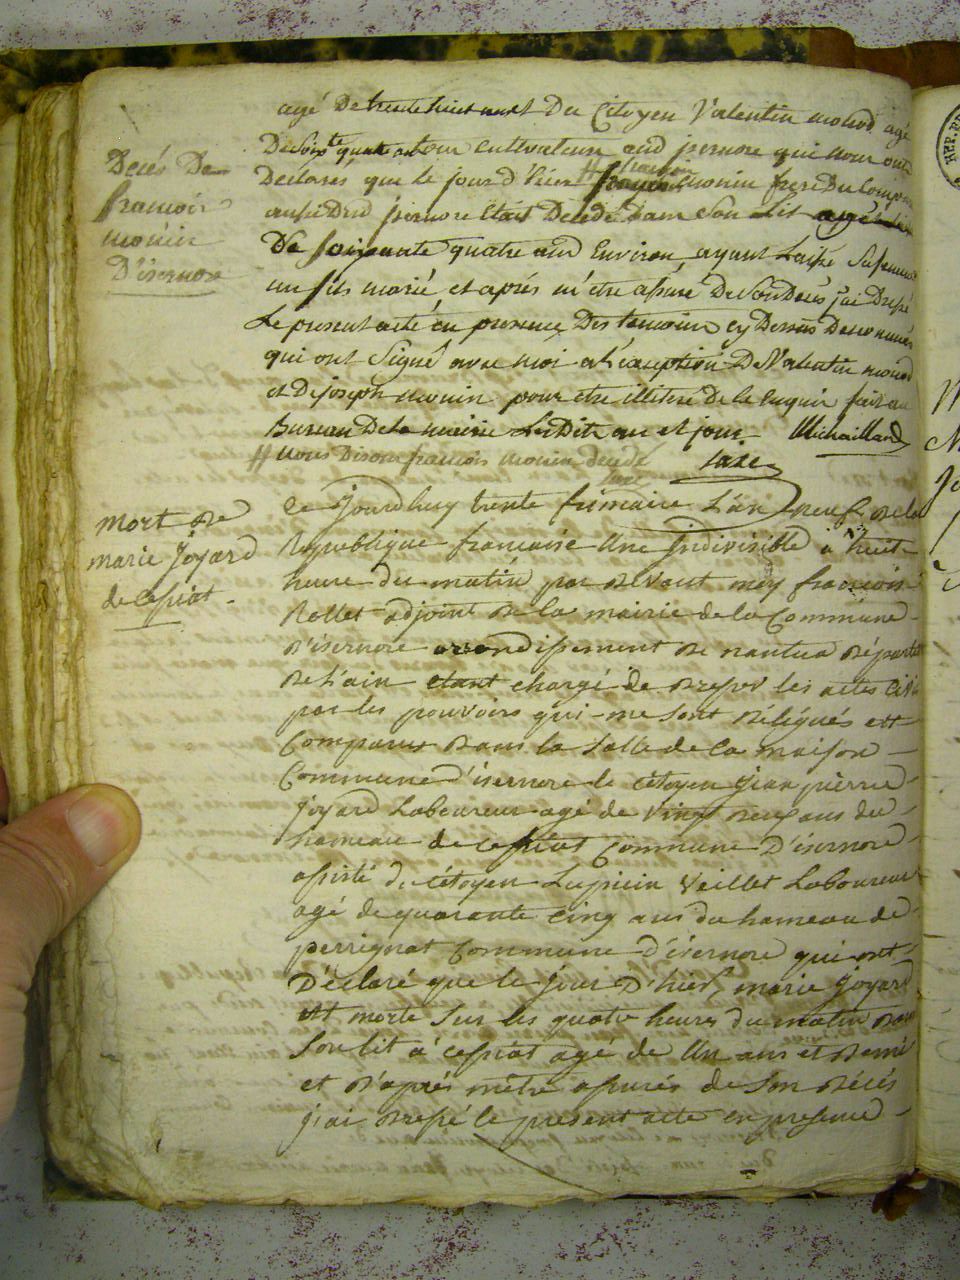 agé De trente huit ans et Du Citoyen Valentin monod agé
De soixte quatre ans tous cultivateurs aud isernore qui nous ont
Décès De
françois
monin
D'isernore
Déclarés que le jour d'hier # françois monin frere Du Compa
aussi Dud isernore Etait Décédé dans Son Lit
De soixante quatre ans Environ, ayant Laissé Sa femme
un fils marié, et aprés m'être assuré De Son Décès j'ai Dressé
Le present acte en presence Des temoins cy Dessus Denommés
qui ont Signé avec moi a L'exception De Valentin monod
et De joseph monin pour etre illitéré de le Enquis fait au
Bureau De la mairie Lesdits an et jour Michaillard
# nous Disons françois monin decedé
mort de
marie joyard
de cessiat
Ce jourdhuy trente frimaire L'an neuf de la
Republique francaise Une Indivisible à huit
heure du matin par devant moy francois
Rollet adjoint de la mairie de la Commune
d'isernore arrondissement de nantua départt
de L'ain étant chargé de dresser les actes civils
par les pouvoirs qui me sont délégués est
Comparus dans la Salle de la maison
Commune d'isernore le citoyen jean pierre
joyard Laboureur agé de Vingt ans du
hameau de cessiat Commune D'isernore
assisté du Citoyen Lupicin Veillet Laboureur
agé de quarante Cinq ans du hameau de
perrignat Commune d'isernore qui ont
Déclaré que le jour D'hier, marie joyard
est morte Sur les quatre heures du matin dans
Son lit à cessiat agé de Un ans et demi
et d'aprés m'être assurés de Son décés
j'ai dressé le present acte en presence